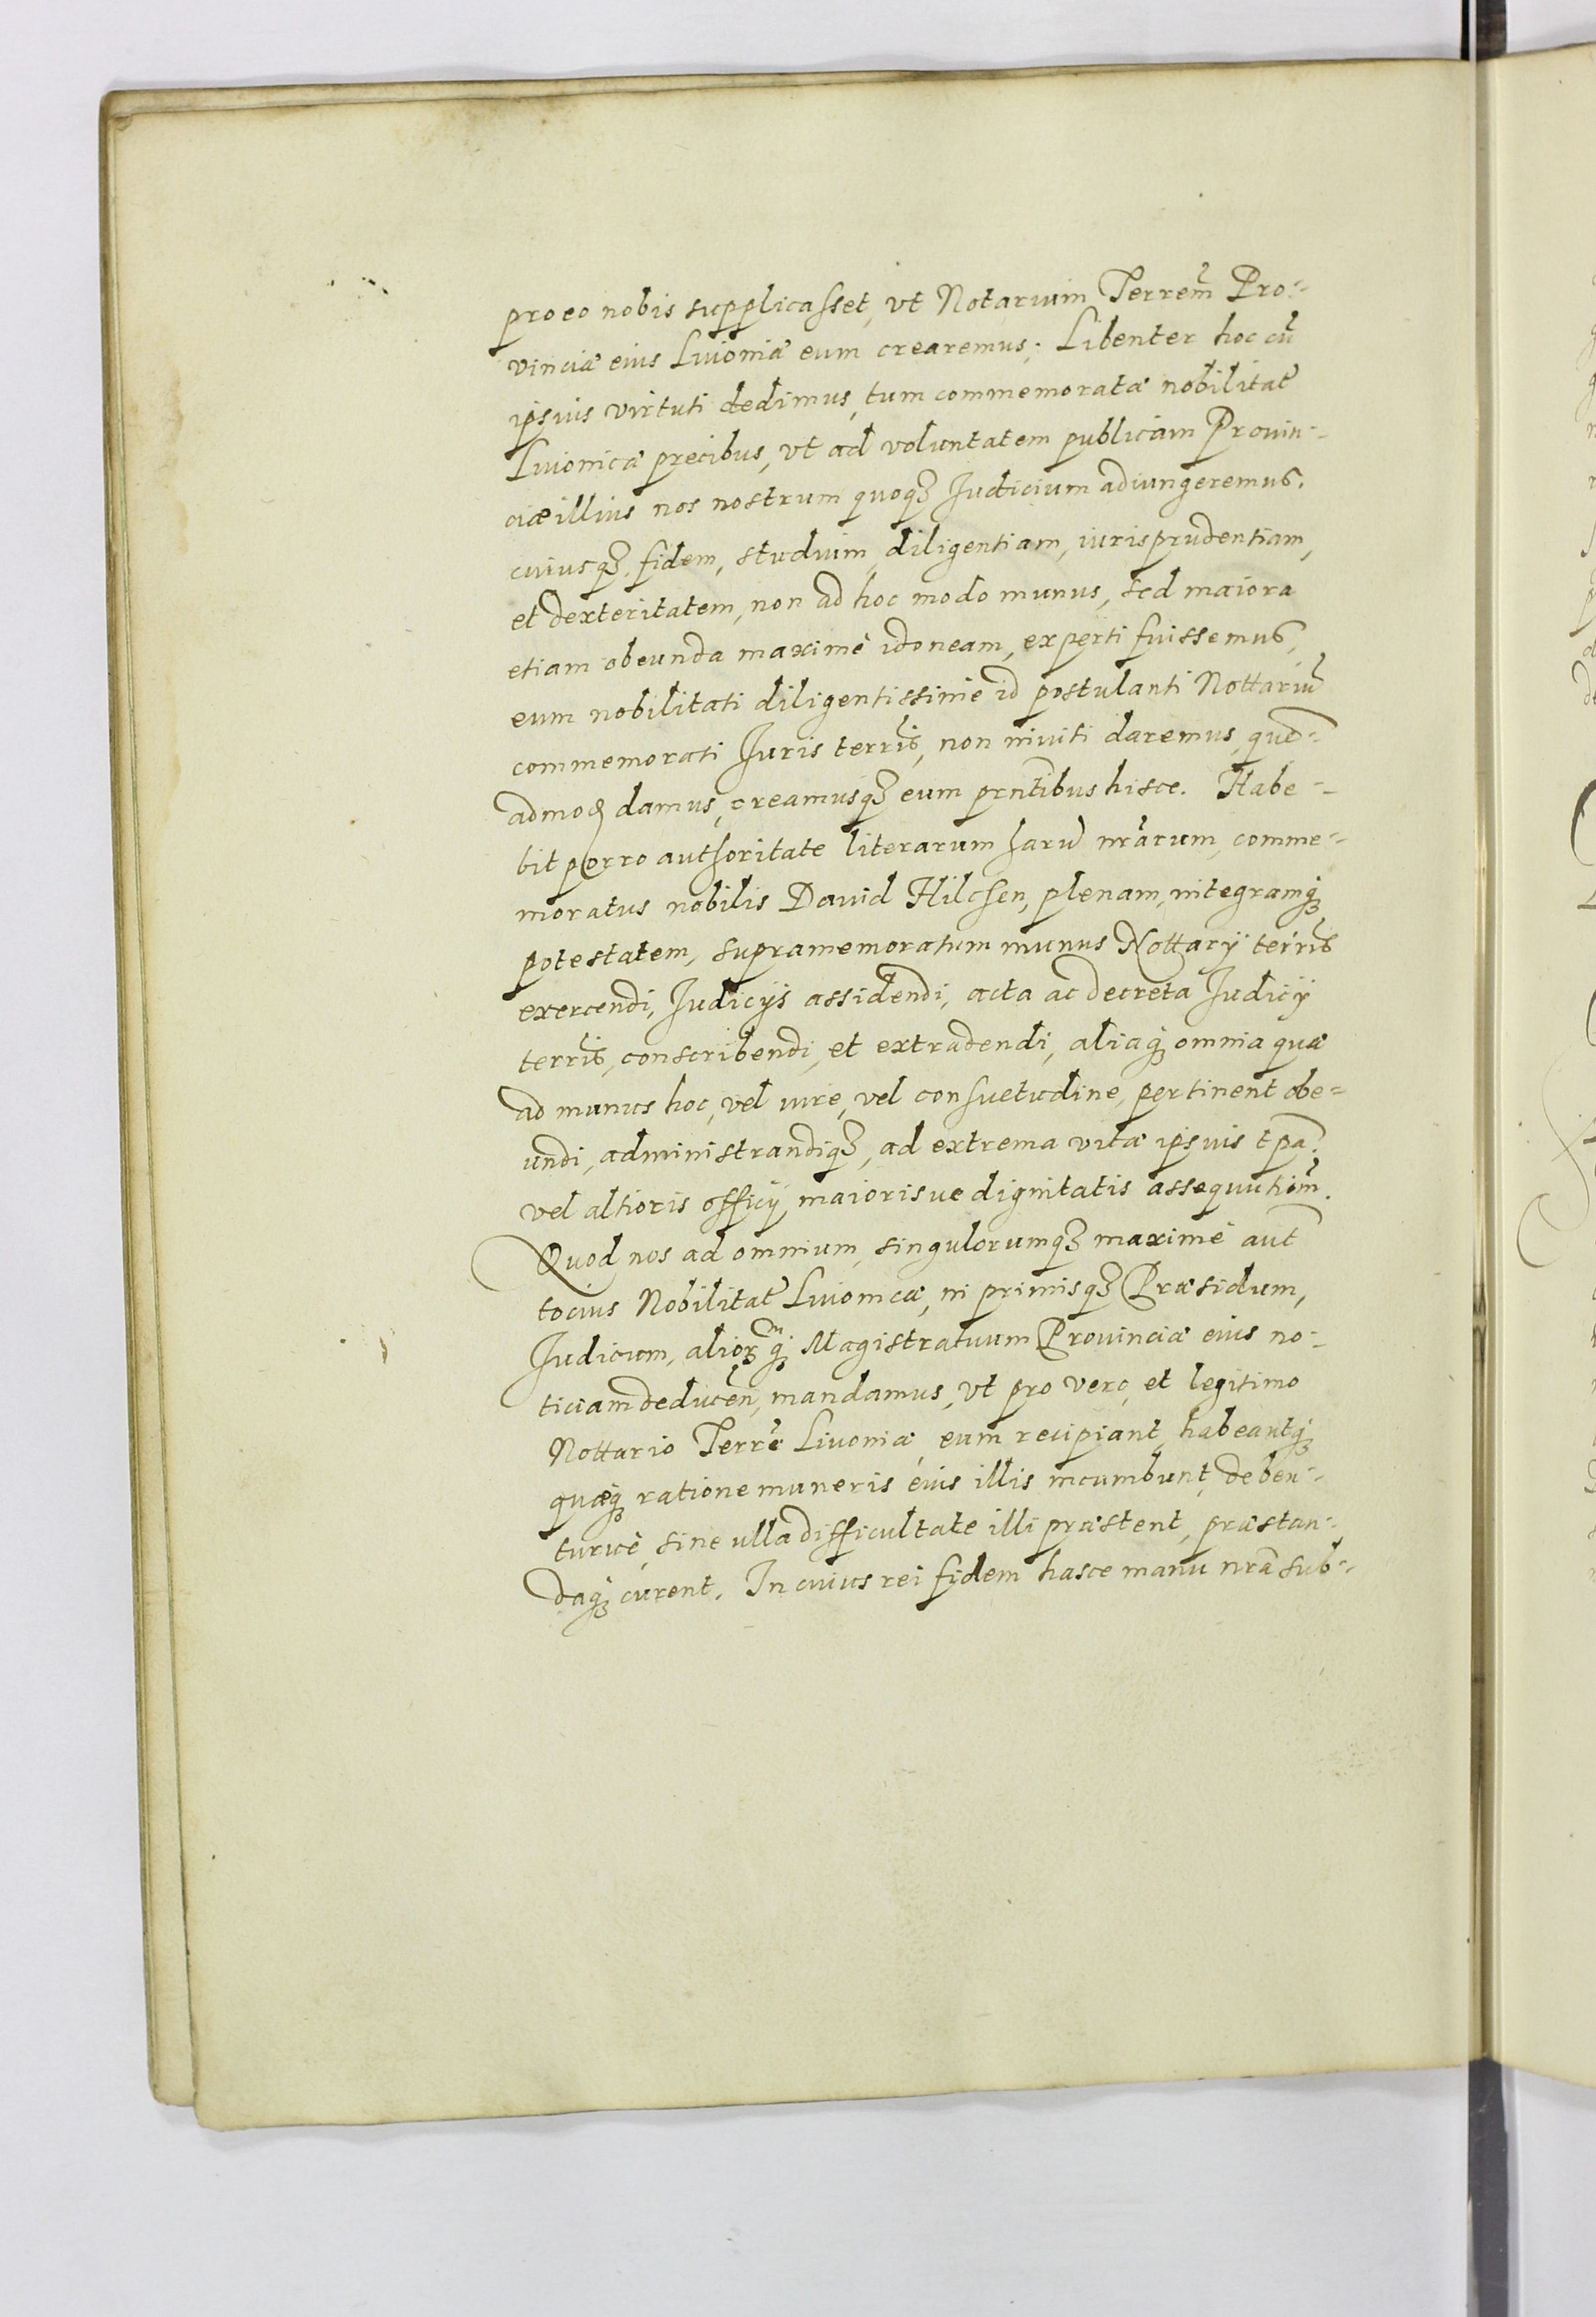 pro eo nobis supplicasset, vt Notarium Terrem̃ Pro-
vinciæ eius Liuoniæ eum crearemus: Libenter hoc cũ
ipsius virtuti dedimus, tum commemoratæ nobilitat̃
Liuonicæ precibus, vt ad voluntatem publicam Prouin-
ciæ illius nos nostrum quoqȝ Iudicium adiungeremus.
cuiusqȝ fidem, studium, diligentiam, iurisprudentiam,
et dexteritatem, non ad hoc modo munus, sed maiora
etiam obeunda maximè idoneam, experti fuissemus,
eum nobilitati diligentissimè id postulanti Nottariũ
commemorati Iuris terrĩs, non inuiti daremus, quẽ-
admoꝺ damus, creamusqȝ eum prñtibus hisce. Habe-
bit porro authoritate literarum harũ nrãrum, comme-
moratus nobilis Dauid Hilchen, plenam, integramqȝ
potestatem, supramemoratum munus Nottarÿ terrĩs
exercendi, Iudicÿs assidendi, acta ac decreta Iudicÿ
terrĩs, conscribendi, et extradendi, aliaqȝ omnia quæ
ad munus hoc, vel iure, vel consuetudine, pertinent obe-
undi, administrandiqȝ, ad extrema vitæ ipsius tpã.
vel altioris officÿ, maiorisue dignitatis assequutiom̃.
Quod nos ad omnium, singulorumqȝ maximè aut̃
tocius Nobilitat̃ Liuonicæ, in primisqȝ Præsidum,
Iudicum, alioꝝqȝ Magistratuum Prouinciæ eius no-
ticiam deduceñ, mandamus, vt pro vero, et legitimo
Nottario Terrẽ Liuoniæ, eum recipiant, habeantqȝ
quæqȝ ratione muneris eius illis incumbunt, deben-
turuè, sine ulla difficultate illi præstent, præstan-
daqȝ curent. In cuius rei fidem hasce manu nrã sub-